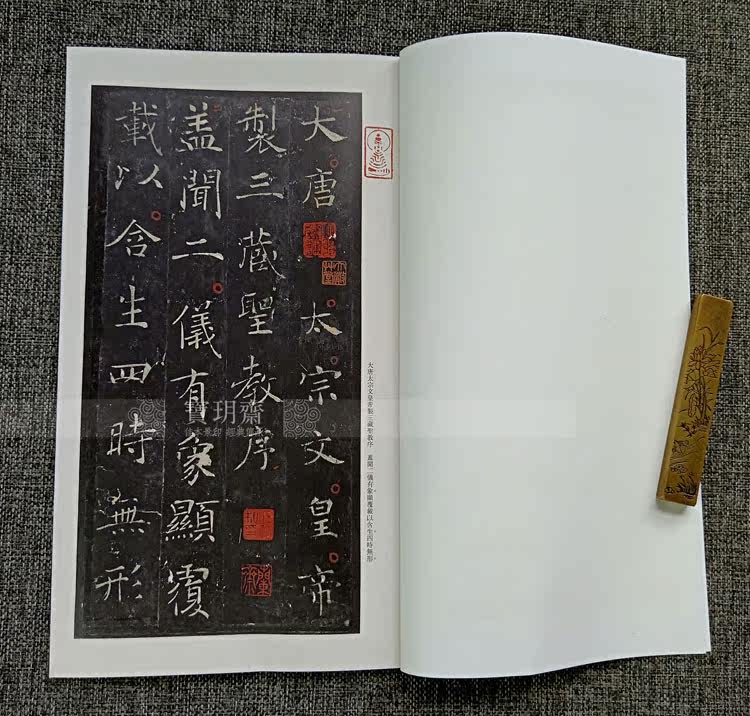 大唐太宗文皇帝
製三藏聖教序
盖聞二儀有象顯覆
載以含生四時無形
大唐太宗文皇帝製三藏聖教序 蓋聞二儀有象顯覆載以含生四時無形
寶玥齋